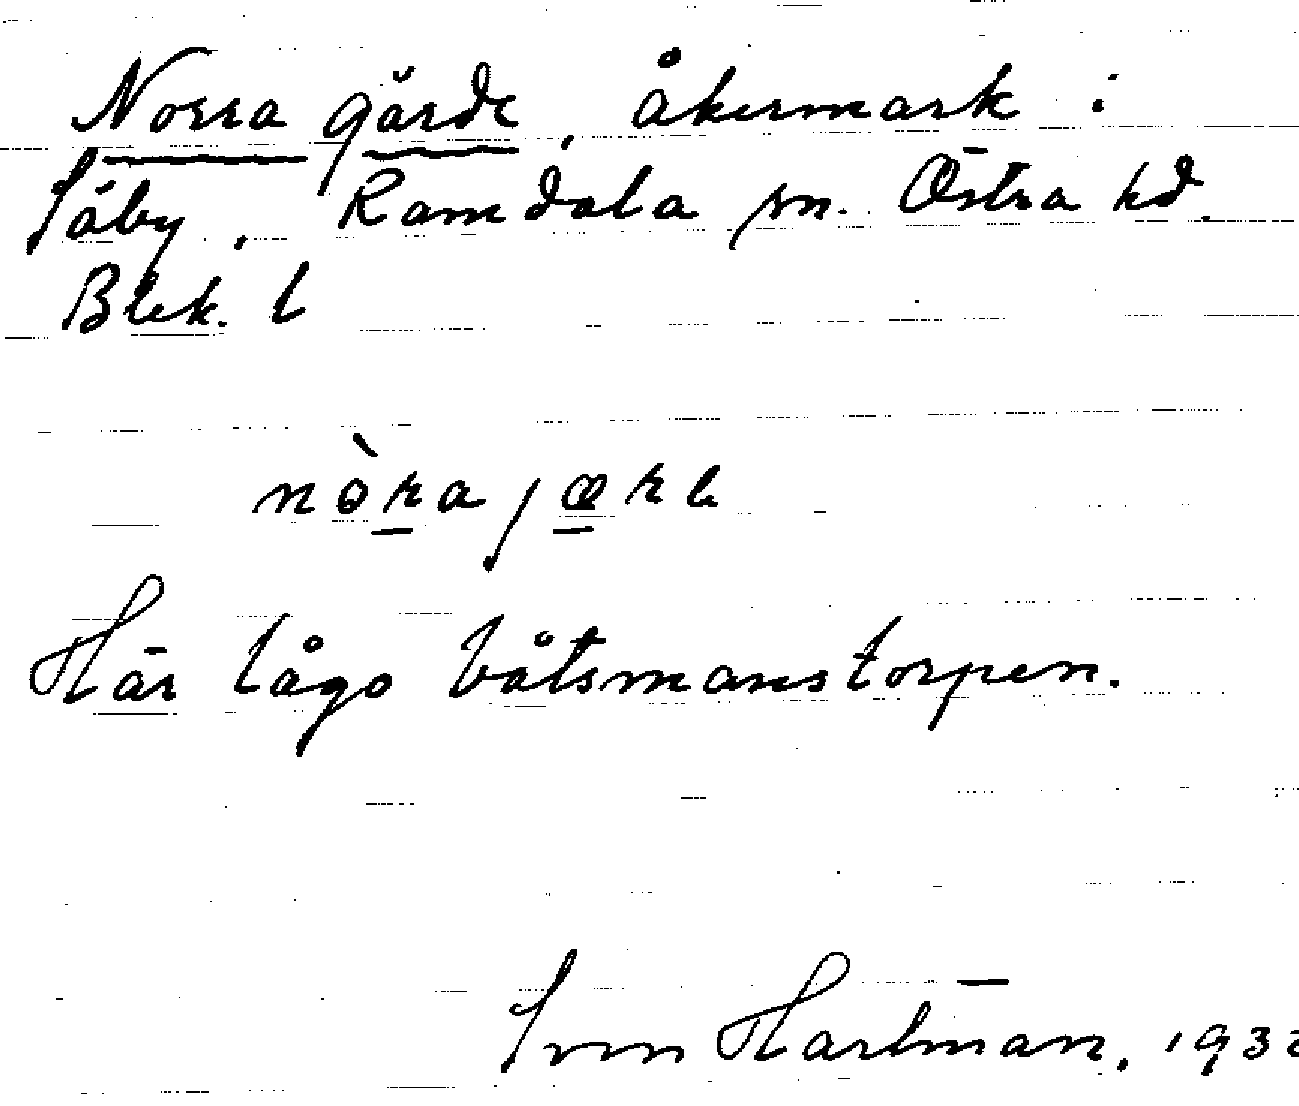 Norra gärde, åkermark i
Säby, Ramdala sn. Östra hd.
Blek. l
nòrajærə
Här lågo båtsmanstorpen.
Sven Hartman. 193